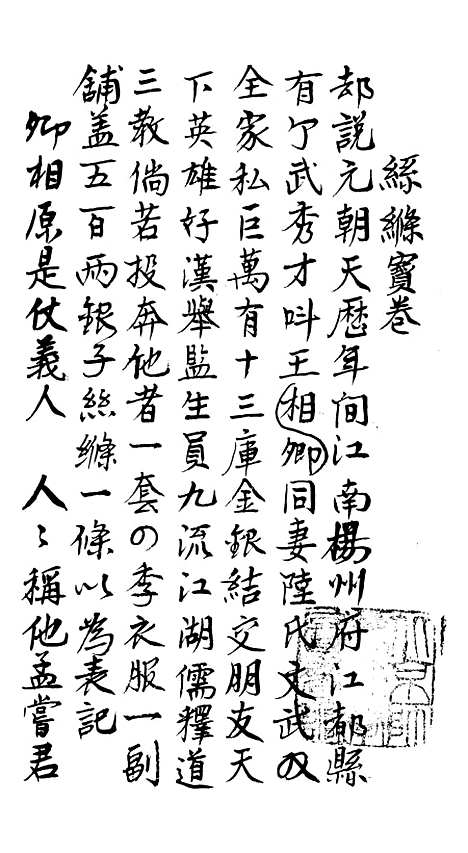 絲縧寶卷
却說元朝天歷年间江南楊州府江都縣
有个武秀才呌王相卿同妻陸氏文武双
全家私巨萬有十三庫金銀結交朋友天
下英雄好漢舉監生員九流江湖儒釋道
三教倘若投奔他者一套の季衣服一副
舖盖五百両銀子絲縧一條以為表記
卿相原是仗義人　人〻稱他孟嘗君